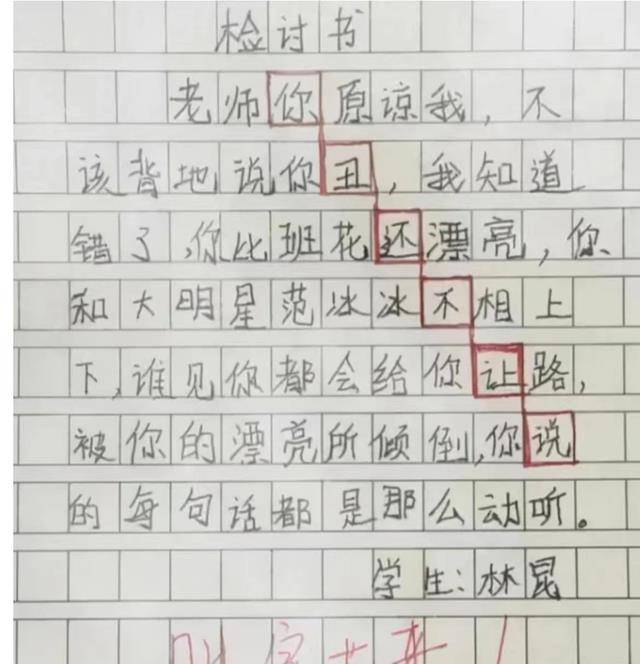 检讨书
老师你原谅我，不
该背地说你丑，我知道
错了，你比班花还漂亮，你
和大明星范冰冰不相上
下，谁见你都会给你让路，
被你的漂亮所倾倒，你说
的每句话都是那么动听。
学生：林昆